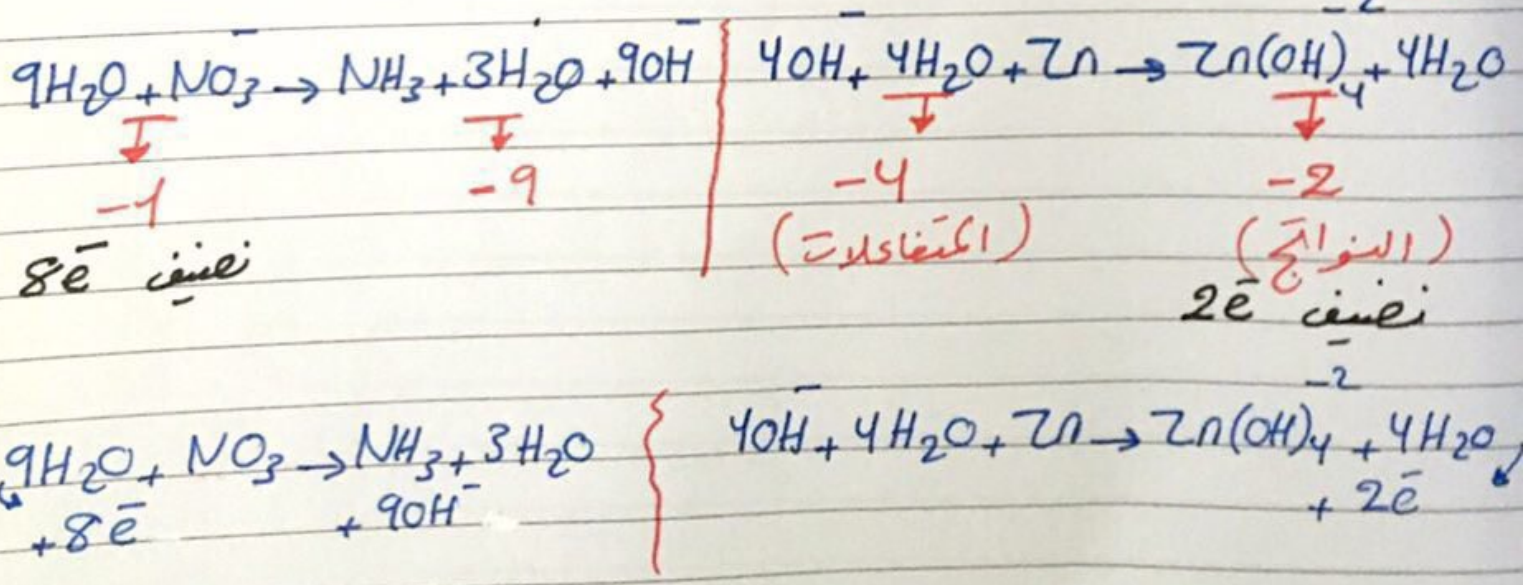 9H₂O + NO₃⁻ → NH₃ + 3H₂O + 9OH⁻
-1 -9
نضيف 8e⁻
4OH⁻ + 4H₂O + Zn → Zn(OH)₄⁻² + 4H₂O
-4 -2
(المتفاعلات) (النواتج)
نضيف 2e⁻
9H₂O + NO₃ → NH₃ + 3H₂O
+ 8e⁻ + 9OH⁻
4OH⁻ + 4H₂O + Zn → Zn(OH)₄⁻² + 4H₂O
+ 2e⁻